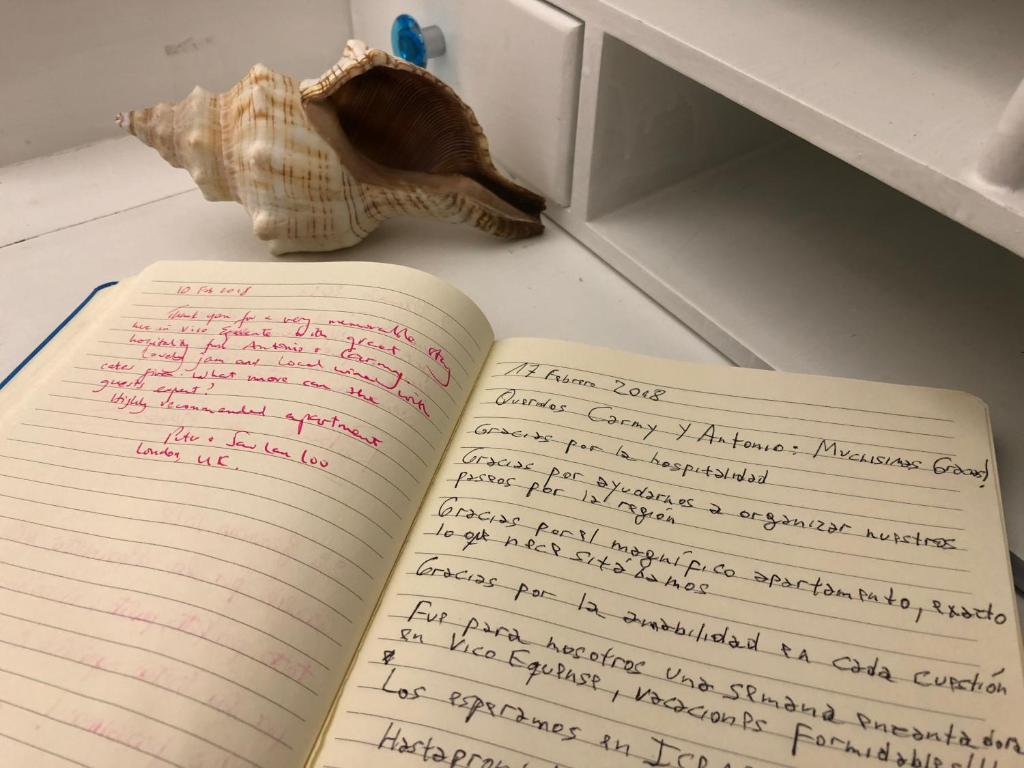 10 Feb 2018
Thank you for a very memorable stay
here in Vico Equense with great
hospitality from Antonio + Carmy.
Lovely jam and local wine,
cake, pizza. What more can the with
guests expect?
Highly recommended apartment
Peter + San Lan Loo
London, UK.
17 Febrero 2018
Queridos Carmy y Antonio: Muchisimas Gracias!
Gracias por la hospitalidad
Gracias por ayudarnos a organizar nuestros
paseos por la región
Gracias por el magnífico apartamento, exacto
lo que necesitabamos
Gracias por la amabilidad en cada cuestión
Fue para nosotros una semana encantadora
en Vico Equense, vacaciones Formidables!!!
Los esperamos en